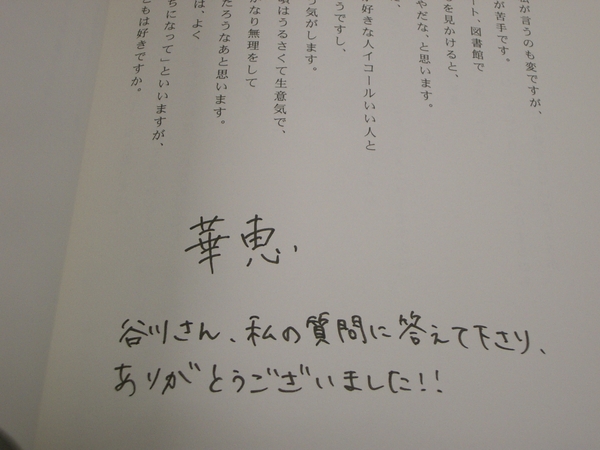 が言うのも変ですが、
が苦手です。
ート、図書館で
を見かけると、
やだな、と思います。
好きな人イコールいい人と
うですし、
う気がします。
頃はうるさくて生意気で、
なり無理をして
たろうなあと思います。
は、よく
ちになって」といいますが、
もは好きですか。
華恵
谷川さん、私の質問に答えて下さり、
ありがとうございました!!